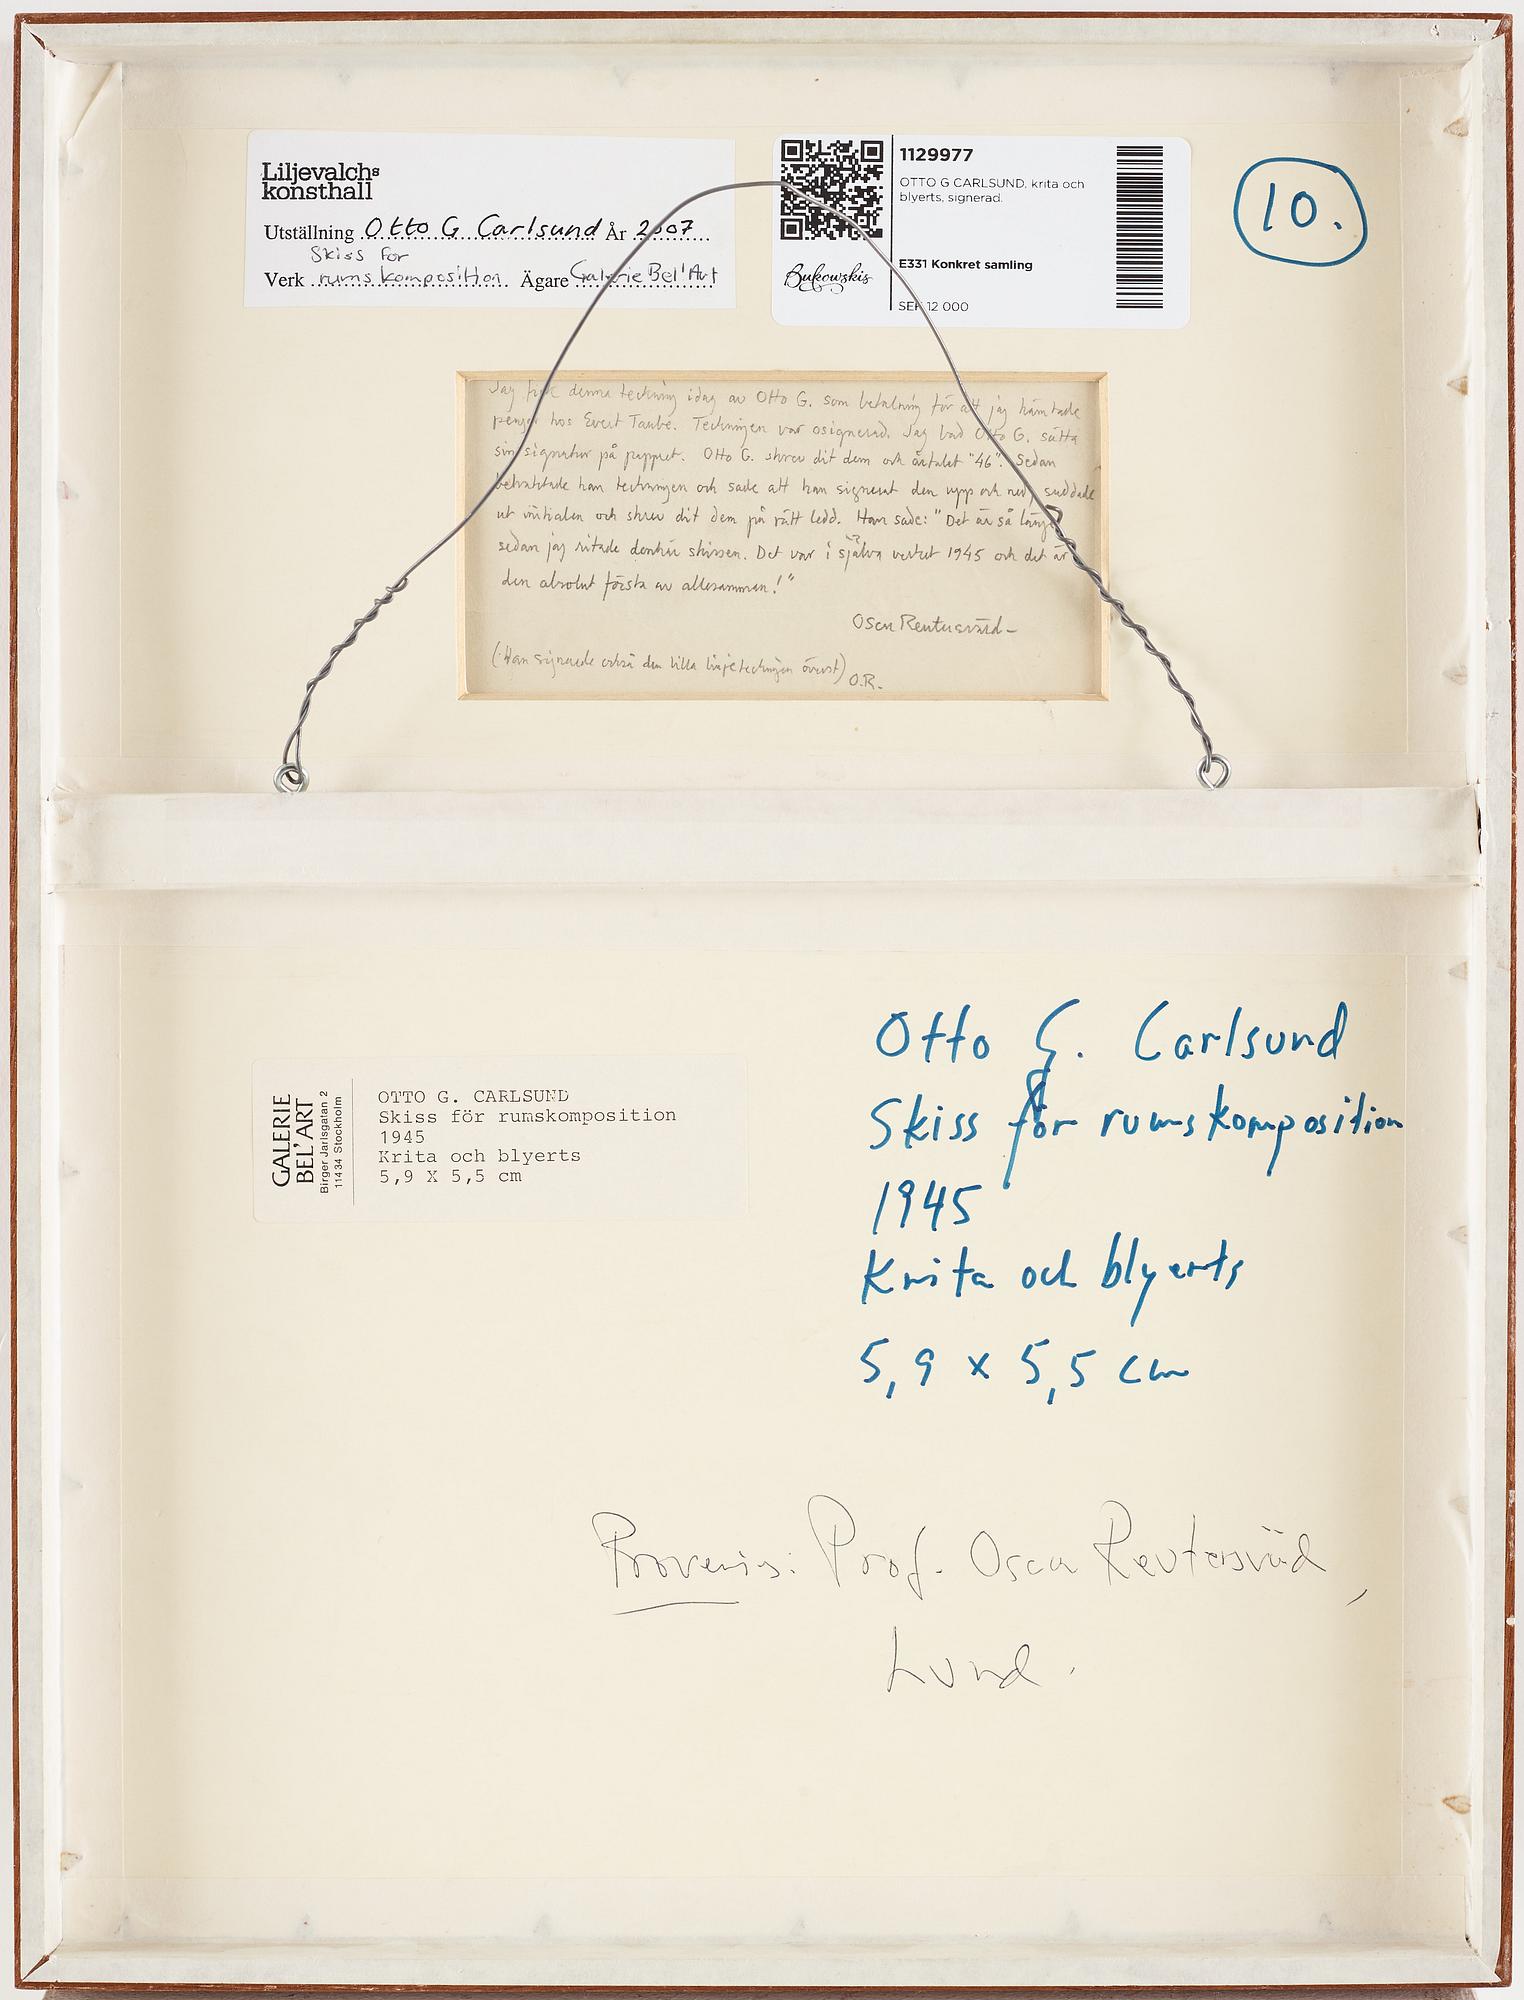 Liljevalchs
konsthall
Utställning Otto G Carlsund År 2007
Skiss för
Verk rumskomposition Ägare Galerie Bel'Art
1129977
OTTO G CARLSUND, krita och
blyerts, signerad.
Bukowskis
E331 Konkret samling
SEK 12 000
10.
Jag fick denna teckning idag av Otto G. som betalning för att jag hämtade
pengar hos Evert Taube. Teckningen var osignerad. Jag bad Otto G. sätta
sin signatur på pappret. Otto G. skrev dit dem och årtalet "46". Sedan
betraktade han teckningen och sade att han signerat den upp och ned, suddade
ut initialen och skrev dit dem på rätt ledd. Han sade: "Det är så länge
sedan jag ritade denhär skissen. Det var i själva verket 1945 och det är
den absolut första av allesamman!"
Oscar Reutersvärd
(Han signerade också den lilla linjeteckningen överst) O.R.
GALERIE
BEL'ART
Birger Jarlsgatan 2
114 34 Stockholm
OTTO G. CARLSUND
Skiss för rumskomposition
1945
Krita och blyerts
5,9 X 5,5 cm
Otto G. Carlsund
Skiss för rumskomposition
1945
Krita och blyerts
5,9 x 5,5 cm
Proveniens: Prof. Oscar Reutersvärd,
Lund.